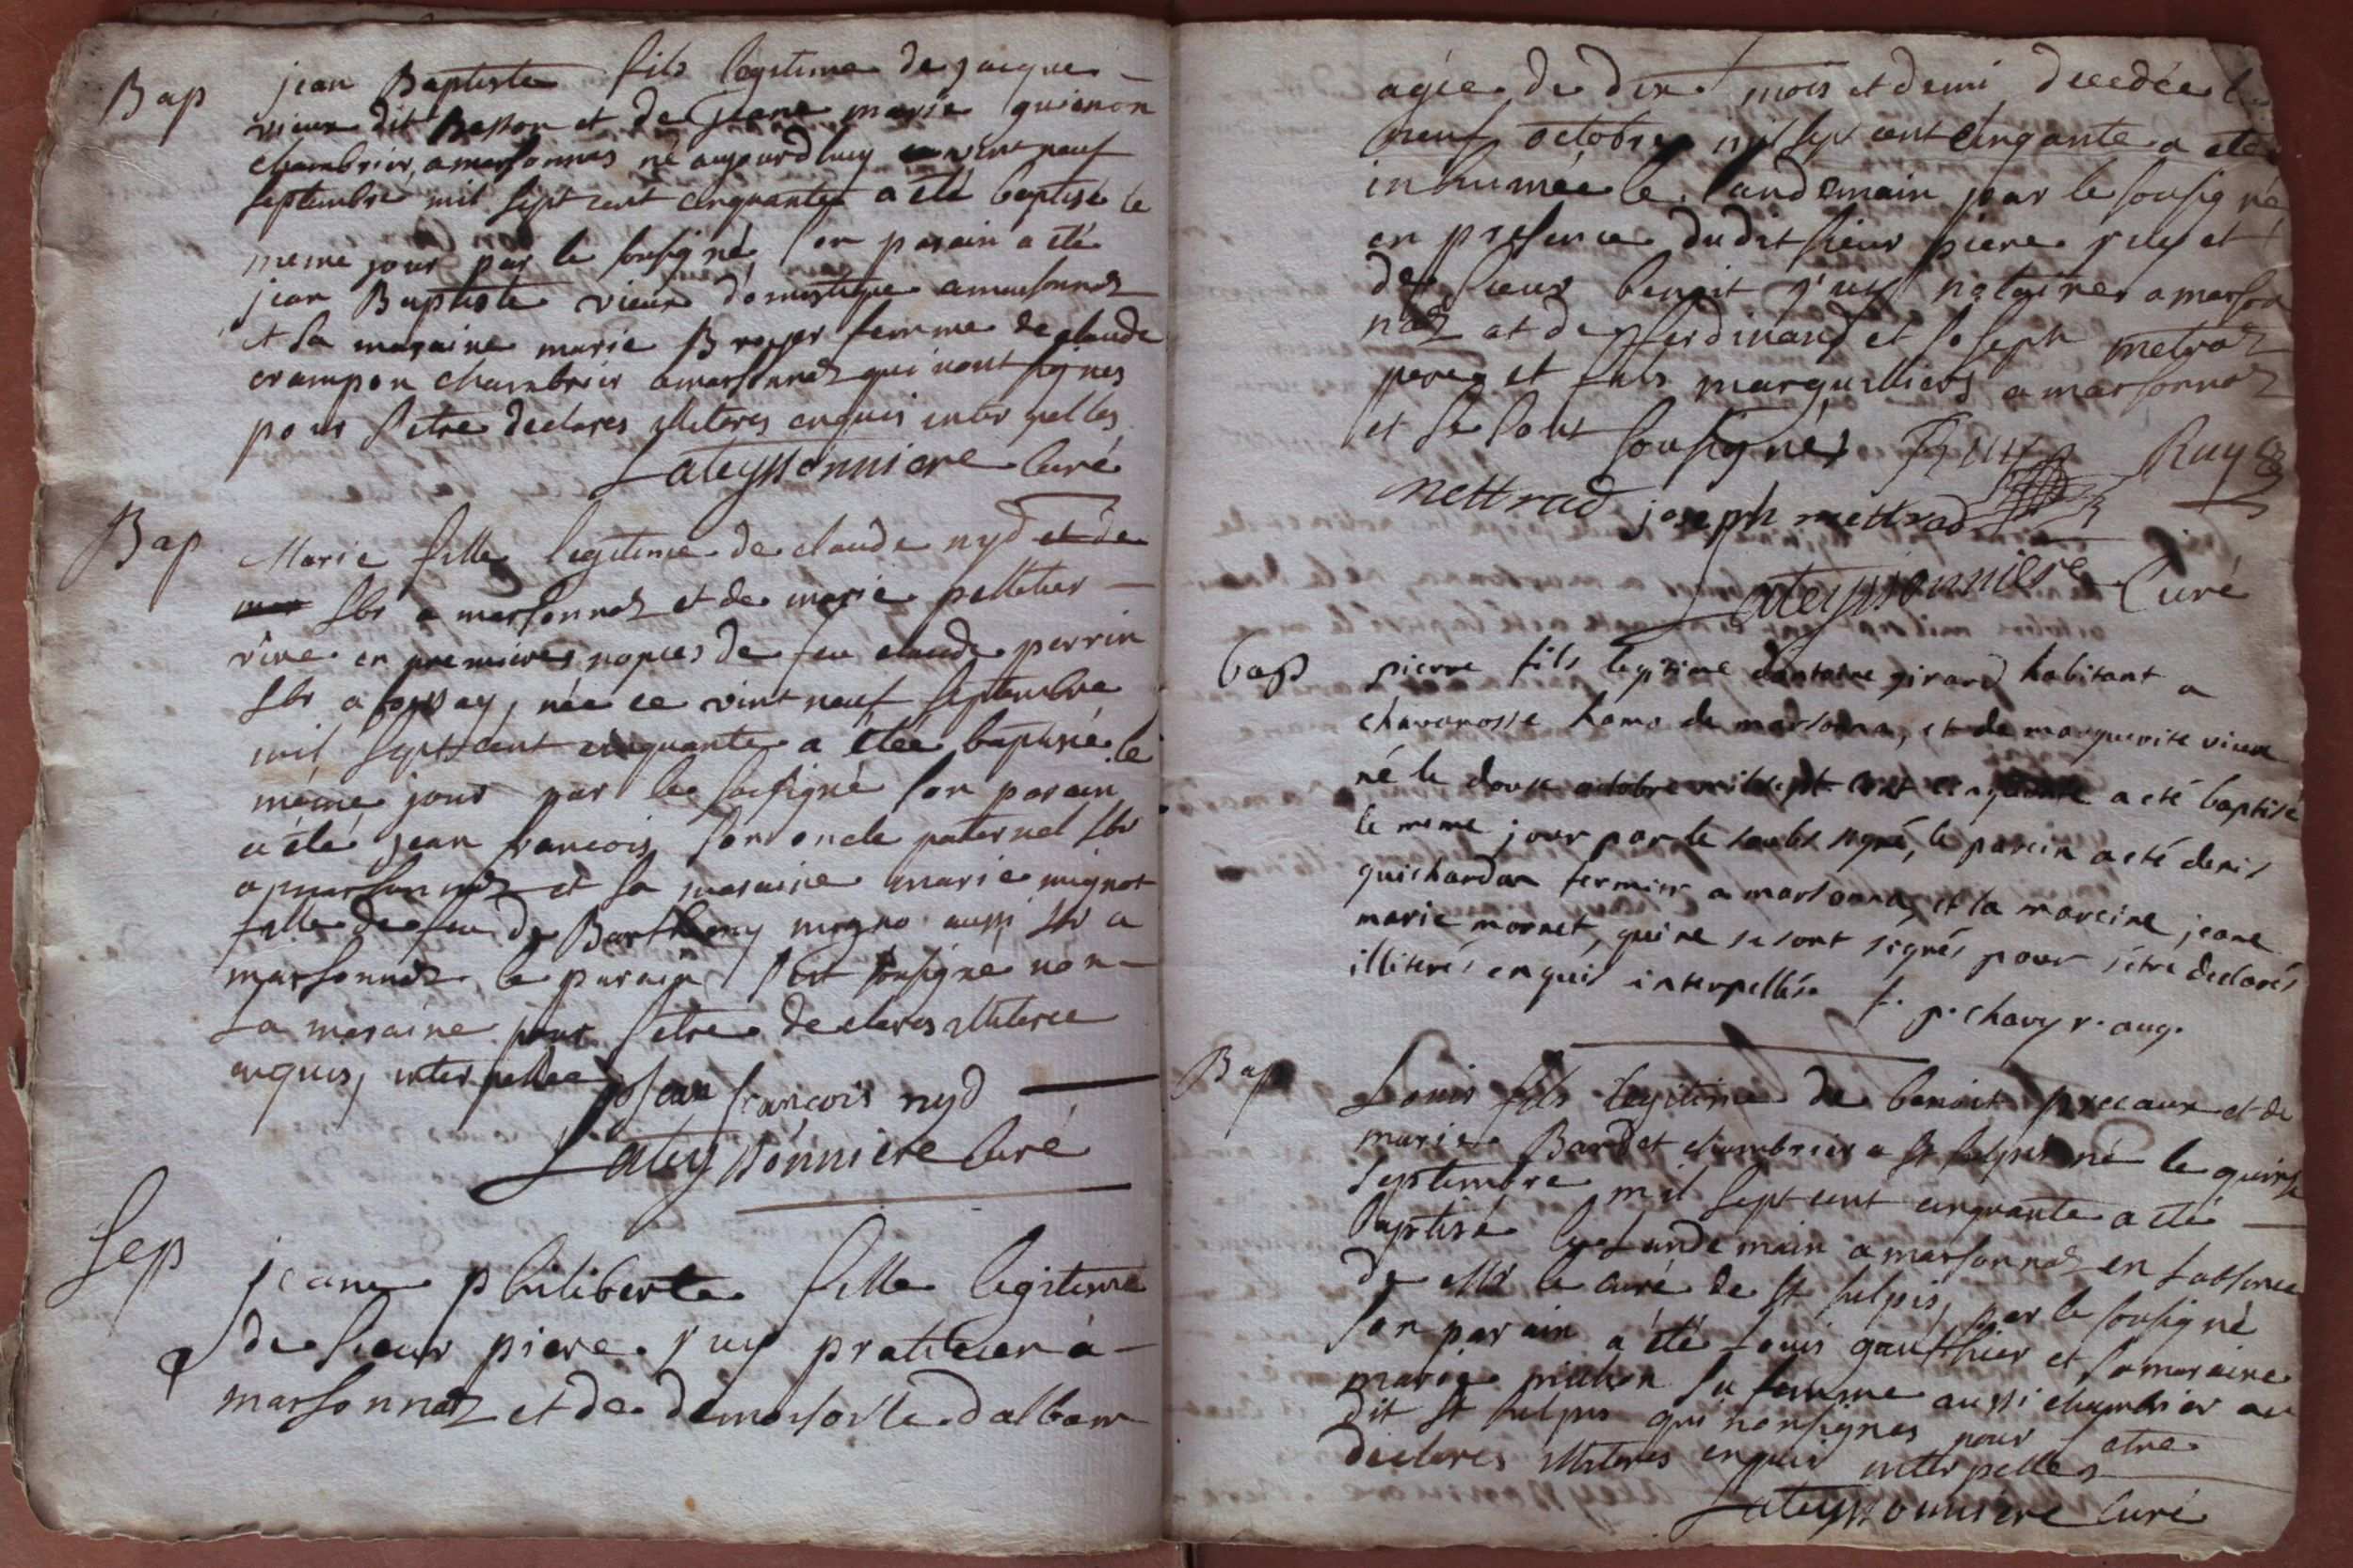 Bap
jean Baptiste fils legitime de jacque
vieux dit Besson et de jeane marie guienon
chambrier, a marsonnas né aujourdhuy vint neuf
septembre mil sept cent cinquante a été baptisé le
meme jour par le sousigné son parain a été
jean Baptiste vieux domestique a marsonnas
et sa maraine marie Broyer femme de claude
crampon chambrier a marsonnas qui nont signes
pour s'etre declares illiteres enquis interpelles
Lateyssonniere Curé
Bap
Marie fille legitime de claude nyd et de
mar sbr a marsonnas et de marie pelletier
vive en premieres nopces de feu claude perrin
sbr a foissey, née ce vint neuf septembre
mil sept cent cinquante a étée baptisée le
même jour par le sousigné son parain
a été jean francois son oncle paternel sbr
a marsonnas et sa maraine marie mignot
fille de feu de Barthlemy migno aussi sbr a
marsonnas le parain s'est sousigne non
La maraine pour s'etre declares illiteree
enquis, interpellee
jean francois nyd
Lateyssonniere Curé
Sep
jeane philiberte fille legitime
de sieur piere ruy praticien à
marsonnas et de demoiselle dalban
agée de dix mois et demi decedée le
neuf octobre mil sept cent cinqante a été
inhumée le landemain par le sousigné
en presence dudit sieur piere ruy et
des sieur benoit ruy notaires a marson
nas et de ferdinand et joseph metras
peres et fils marguilliers a marsonnas
et se sont sousignés Ruy Ruy
mettrad joseph mettrad
Lateyssonniere Curé
bap
pierre fils legitime dantoine girard habitant a
chavanosse hamo de marsonna, et de marguerite vieux
né le douse octobre mil sept cent cinquante a eté baptisé
le meme jour par le soubs signé, le parein a eté denis
guichardan fermier a marsonna, et la mareine jeane
marie mornet, qui ne se sont signés pour s'être declarés
illiterés enquis interpellés. f. p. chavy r. aug.
Bap
Louis fils legitime de benoit preeaux et de
marie Bardet chambrier a St sulpis né le quinse
septembre mil sept cent cinquante a été
baptisé le Landemain a marsonnas en Labsence
de Mr le curé de St sulpis, par le sousigné
son parain a été Louis gauthier et sa maraine
marie michon sa femme aussi chambrier au
dit St sulpis qui n'ont signes pour etre
declares illiteres enquis interpelles
Lateyssonniere Curé